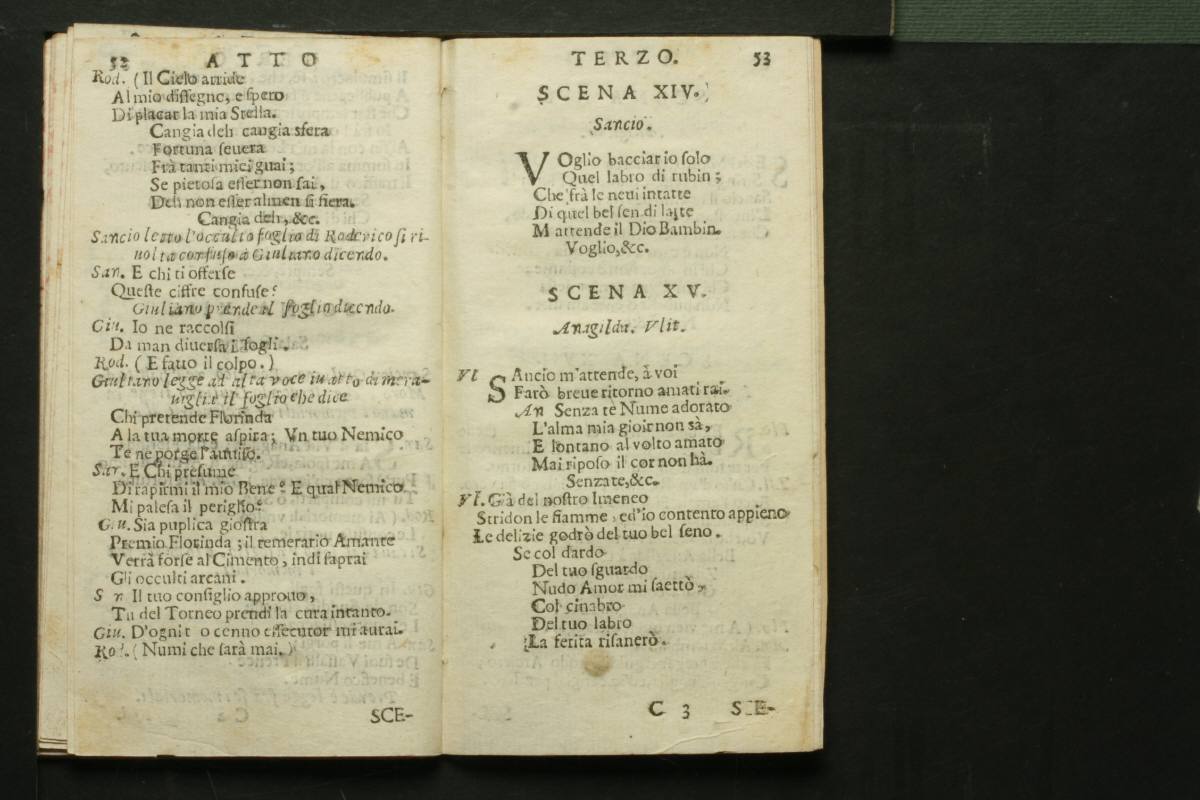 52 ATTO
Rod. (Il Cielo arride
Al mio dissegno, e spero
Di placar la mia Stella.
Cangia deh cangia sfera
Fortuna seuera
Frà tanti miei guai;
Se pietosa esser non sai,
Deh non esser almen si fiera.
Cangia deh, &c.
Sancio letto l'occulto foglio di Roderico si ri-
uolta confuso à Giuliano dicendo.
San. E chi ti offerse
Queste ciffre confuse?
Giuliano prende il foglio dicendo.
Giu. Io ne raccolsi
Da man diuersa i fogli.
Rod. (E fatto il colpo.)
Giuliano legge ad alta voce in atto di mera-
uiglia il foglio che dice
Chi pretende Florinda
A la tua morte aspira; Vn tuo Nemico
Te ne porge l'auuiso.
San. E Chi presume
Di rapirmi il mio Bene? E qual Nemico
Mi palesa il periglio?
Giu. Sia puplica giostra
Premio Florinda; il temerario Amante
Verrà forse al Cimento, indi saprai
Gli occulti arcani.
S n Il tuo consiglio approuo,
Tu del Torneo prendi la cura intanto.
Giu. D'ogni t o cenno essecutor m'aurai.
Rod. (Numi che sarà mai.)
SCE-
TERZO. 53
SCENA XIV.
Sancio.
VOglio bacciar io solo
Quel labro di rubin;
Che frà le neui intatte
Di quel bel sen di latte
M attende il Dio Bambin.
Voglio, &c.
SCENA XV.
Anagilda. Vlit.
Vl SAncio m'attende, à voi
Farò breue ritorno amati rai.
An Senza te Nume adorato
L'alma mia gioir non sà,
E lontano al volto amato
Mai riposo il cor non hà.
Senza te, &c.
Vl. Già del nostro Imeneo
Stridon le fiamme, ed'io contento appieno
Le delizie godrò del tuo bel seno.
Se col dardo
Del tuo sguardo
Nudo Amor mi saettò,
Col cinabro
Del tuo labro
La ferita risanerò.
C 3 SCE-